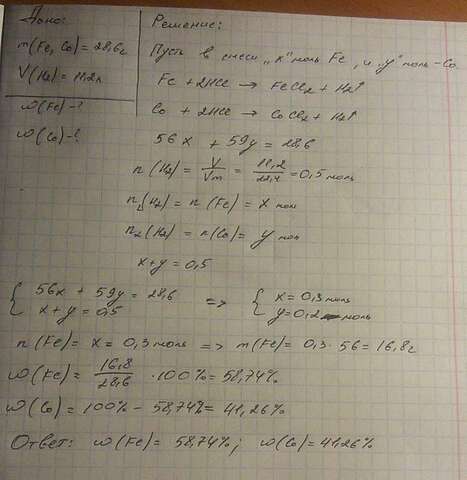 Дано:
m(Fe, Co) = 28,6г
V(H2) = 11,2л
ω(Fe) - ?
ω(Co) - ?
Решение:
Пусть в смеси „x" моль Fe, и „y" моль - Co.
Fe + 2HCl → FeCl2 + H2↑
Co + 2HCl → CoCl2 + H2↑
56x + 59y = 28,6
n(H2) = V/Vm = 11,2/22,4 = 0,5 моль
n1(H2) = n(Fe) = x мол
n2(H2) = n(Co) = y мол
x+y = 0,5
{ 56x + 59y = 28,6 => { x = 0,3 моль
x + y = 0,5 y = 0,2 моль
n(Fe) = x = 0,3 моль => m(Fe) = 0,3 · 56 = 16,8г
ω(Fe) = 16,8/28,6 · 100% = 58,74%
ω(Co) = 100% - 58,74% = 41,26%
Ответ: ω(Fe) = 58,74%; ω(Co) = 41,26%